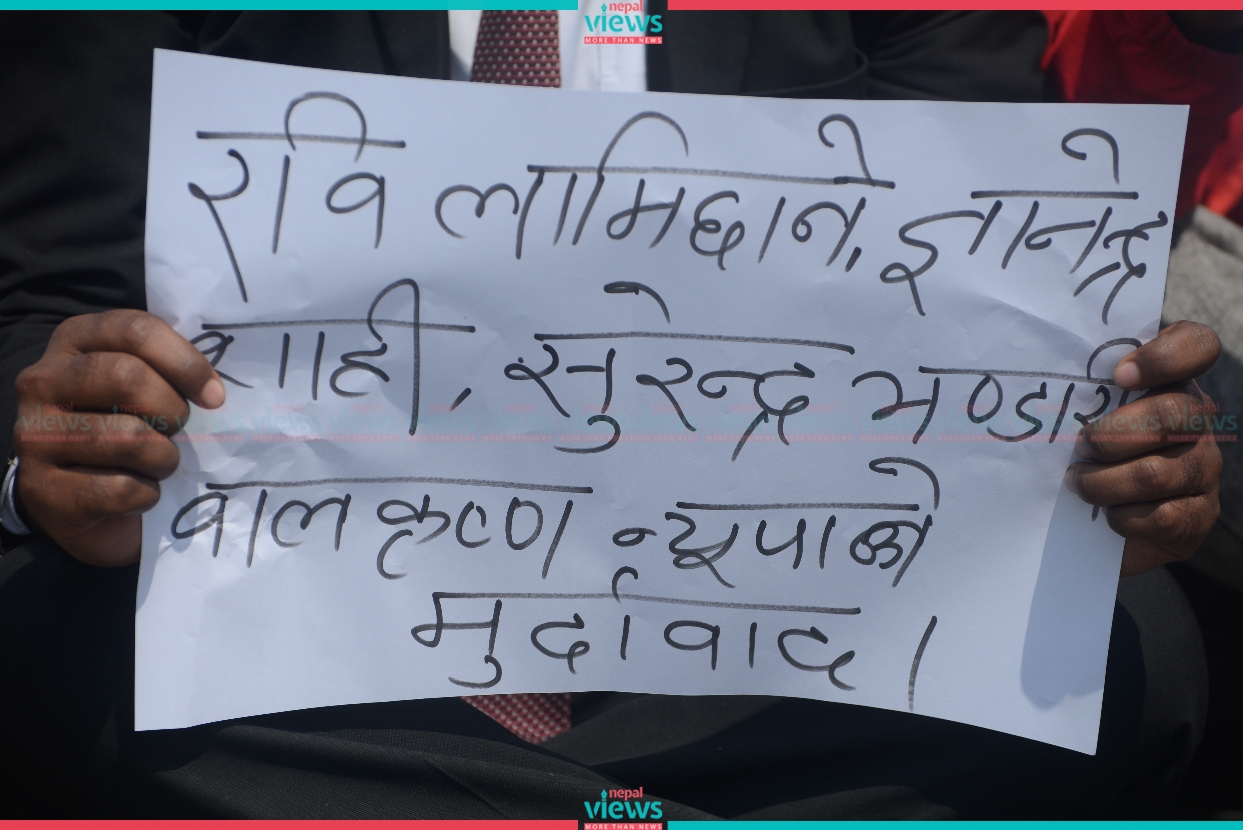 nepal
views
MORE THAN NEWS
रवि लामिछाने, ज्ञानेद्र
शाही, सुरेन्द्र भण्डारी
वालकृष्ण न्यूपाने
मुर्दावाद ।
nepal
views
MORE THAN NEWS